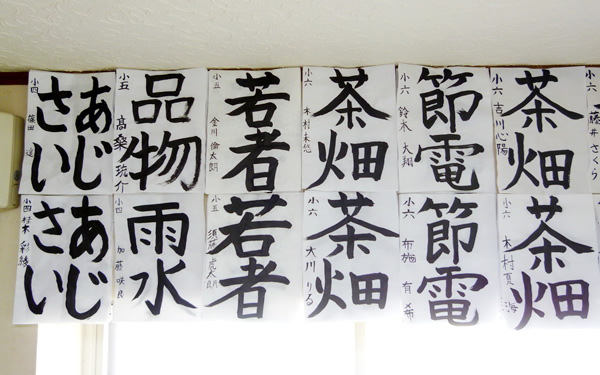 あじ
さい
小四
篠田
品物
小五
高桑 琉介
若者
小五
金川 倫太朗
茶畑
小六
木村 未悠
節電
小六
鈴木 大翔
茶畑
小六
吉川 心陽
藤井 さくら
あじ
さい
小四
彩綾
雨水
小四
加藤 咲良
若者
小五
須藤 虎太朗
茶畑
小六
大川 りる
節電
小六
布施 有希
茶畑
小六
木村 夏海